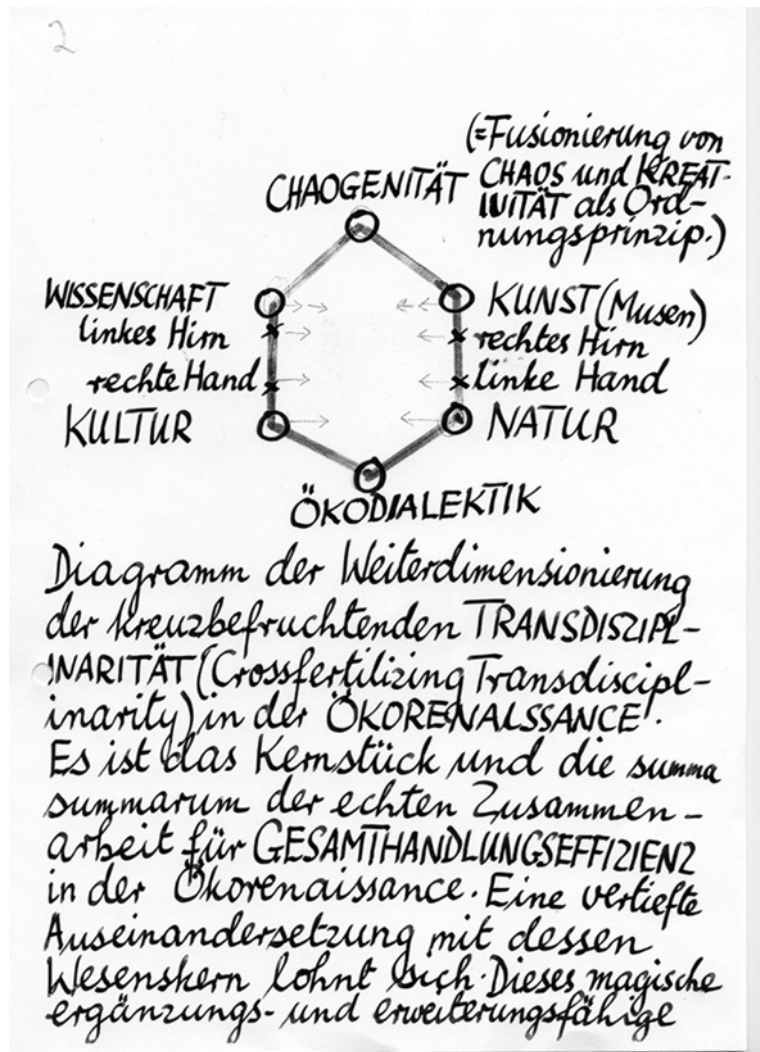 2
(=Fusionierung von
CHAOS und KREAT-
IVITÄT als Ord-
nungsprinzip.)
CHAOGENITÄT
WISSENSCHAFT
linkes Hirn
rechte Hand
KULTUR
KUNST (Musen)
rechtes Hirn
linke Hand
NATUR
ÖKODIALEKTIK
Diagramm der Weiterdimensionierung
der kreuzbefruchtenden TRANSDISZIPL-
INARITÄT (Crossfertilizing Transdiscipl-
inarity) in der ÖKORENAISSANCE.
Es ist das Kernstück und die summa
summarum der echten Zusammen-
arbeit für GESAMTHANDLUNGSEFFIZIENZ
in der Ökorenaissance. Eine vertiefte
Auseinandersetzung mit dessen
Wesenskern lohnt sich. Dieses magische
ergänzungs- und erweiterungsfähige